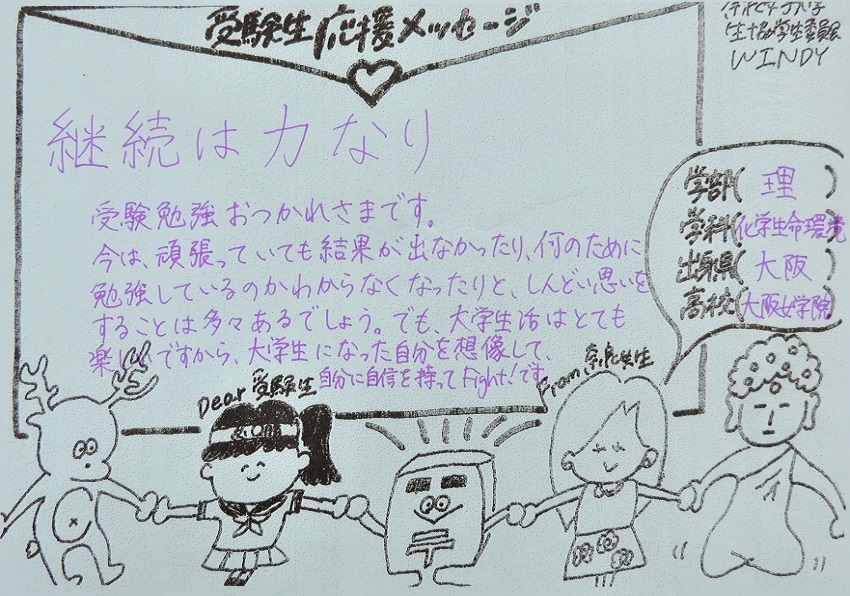 受験生応援メッセージ
生協学生委員会
WINDY
継続は力なり
受験勉強おつかれさまです。
今は、頑張っていても結果が出なかったり、何のために
勉強しているのかわからなくなったりと、しんどい思いを
することは多々あるでしょう。でも、大学生活はとても
楽しいですから、大学生になった自分を想像して、
自分に自信を持ってFight!です
学部(理)
学科(化学生命環境
出身県(大阪)
高校(大阪女学院)
Dear 受験生
From 奈良女生
〒